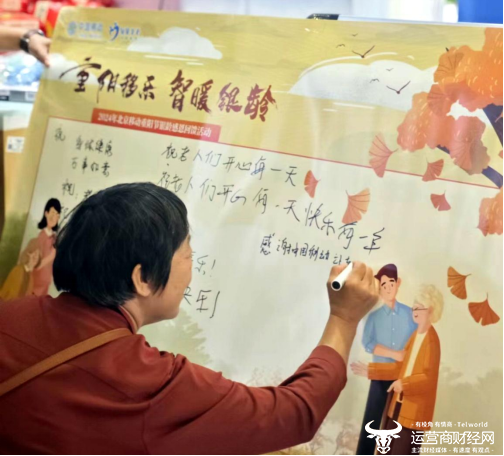 中国移动
重阳移乐 智暖银龄
2024年北京移动重阳节银龄感恩回馈活动
祝
身体健康
万事如意
祝老人们开心每一天
祝老人们开心每一天快乐每一年
感谢中国移动
乐！
快乐！
·有视角 有情商·Telworld
运营商财经网
主流财经媒体·有速度 有观点